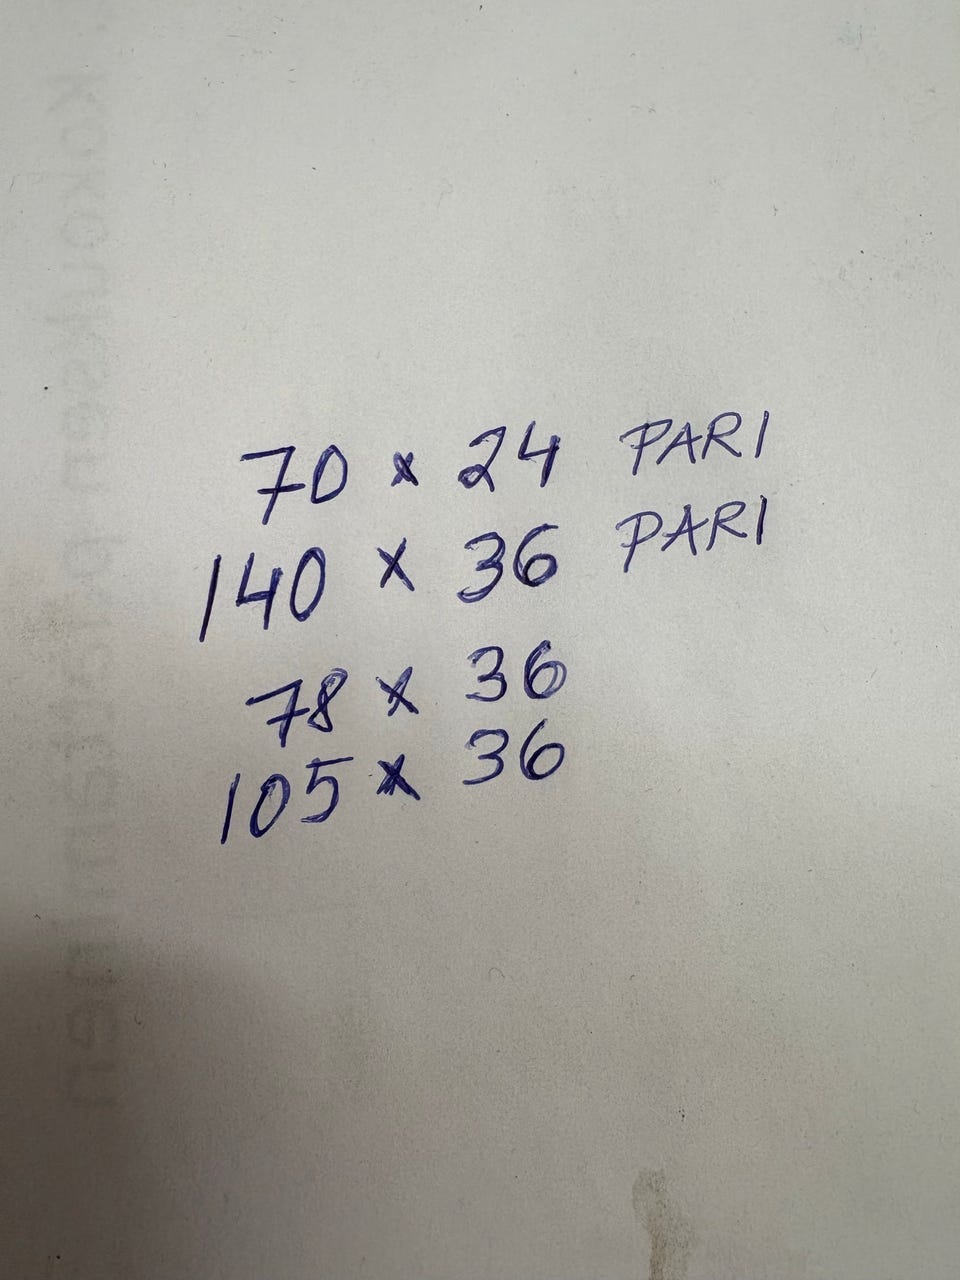 70 x 24 PARI
140 x 36 PARI
78 x 36
105 x 36